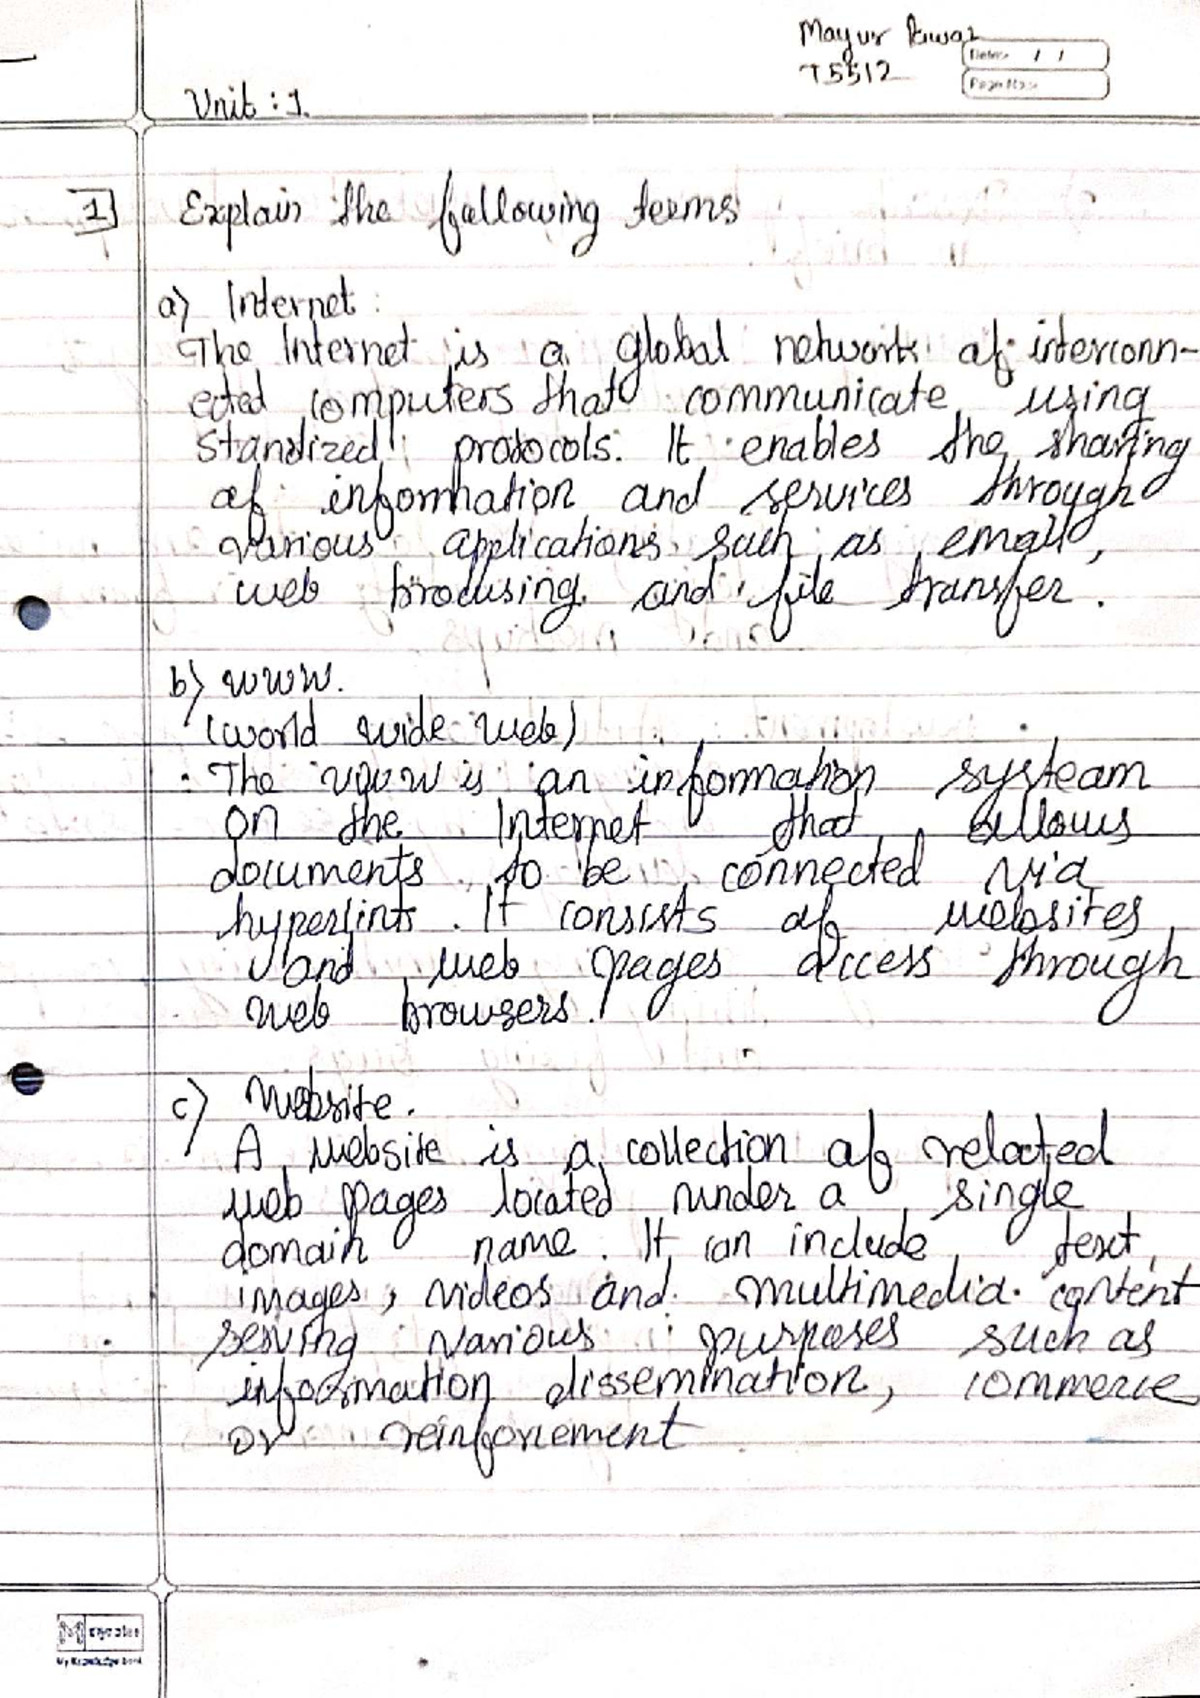 Mayur Pawar
T5512
Date:- / /
Page No:-
Unit : 1.
1] Explain the following terms
a) Internet :
The Internet is a global network of interconn-
ected computers that communicate using
standized protocols. It enables the sharing
of information and services through
various applications such as email,
web browsing and file transfer.
b) WWW.
(world wide web)
The www is an information systeam
on the Internet that allows
documents to be connected via
hyperlints. It consists of websites
and web pages access through
web browsers.
c) Website.
A website is a collection of related
web pages located under a single
domain name. It can include text,
images, videos and multimedia content
serving various purposes such as
information dissemination, commerce
or reinforcement
My Knowledge book